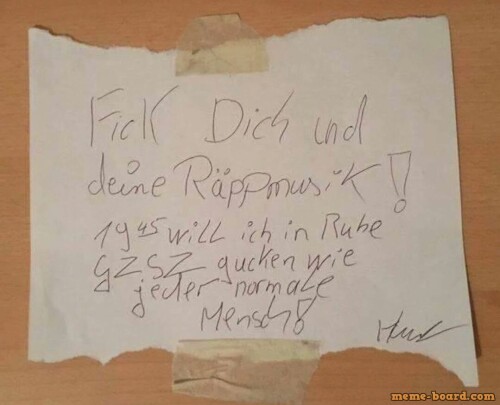 Fick Dich und
deine Räppmusik!
19⁴⁵ will ich in Ruhe
GZSZ gucken wie
jeder normale
Mensch!
meme-board.com